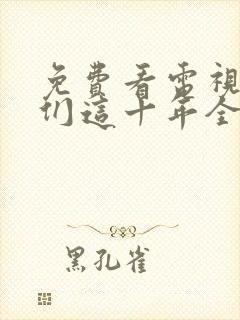 免費看電視
们這十年全
黑孔雀